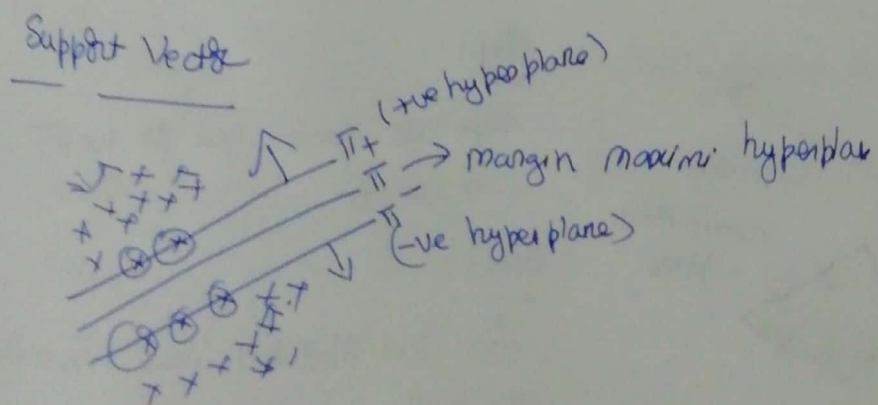 Support Vector
π+ (+ve hyperplane)
π → margin maximi. hyperplan
π- (-ve hyperplane)